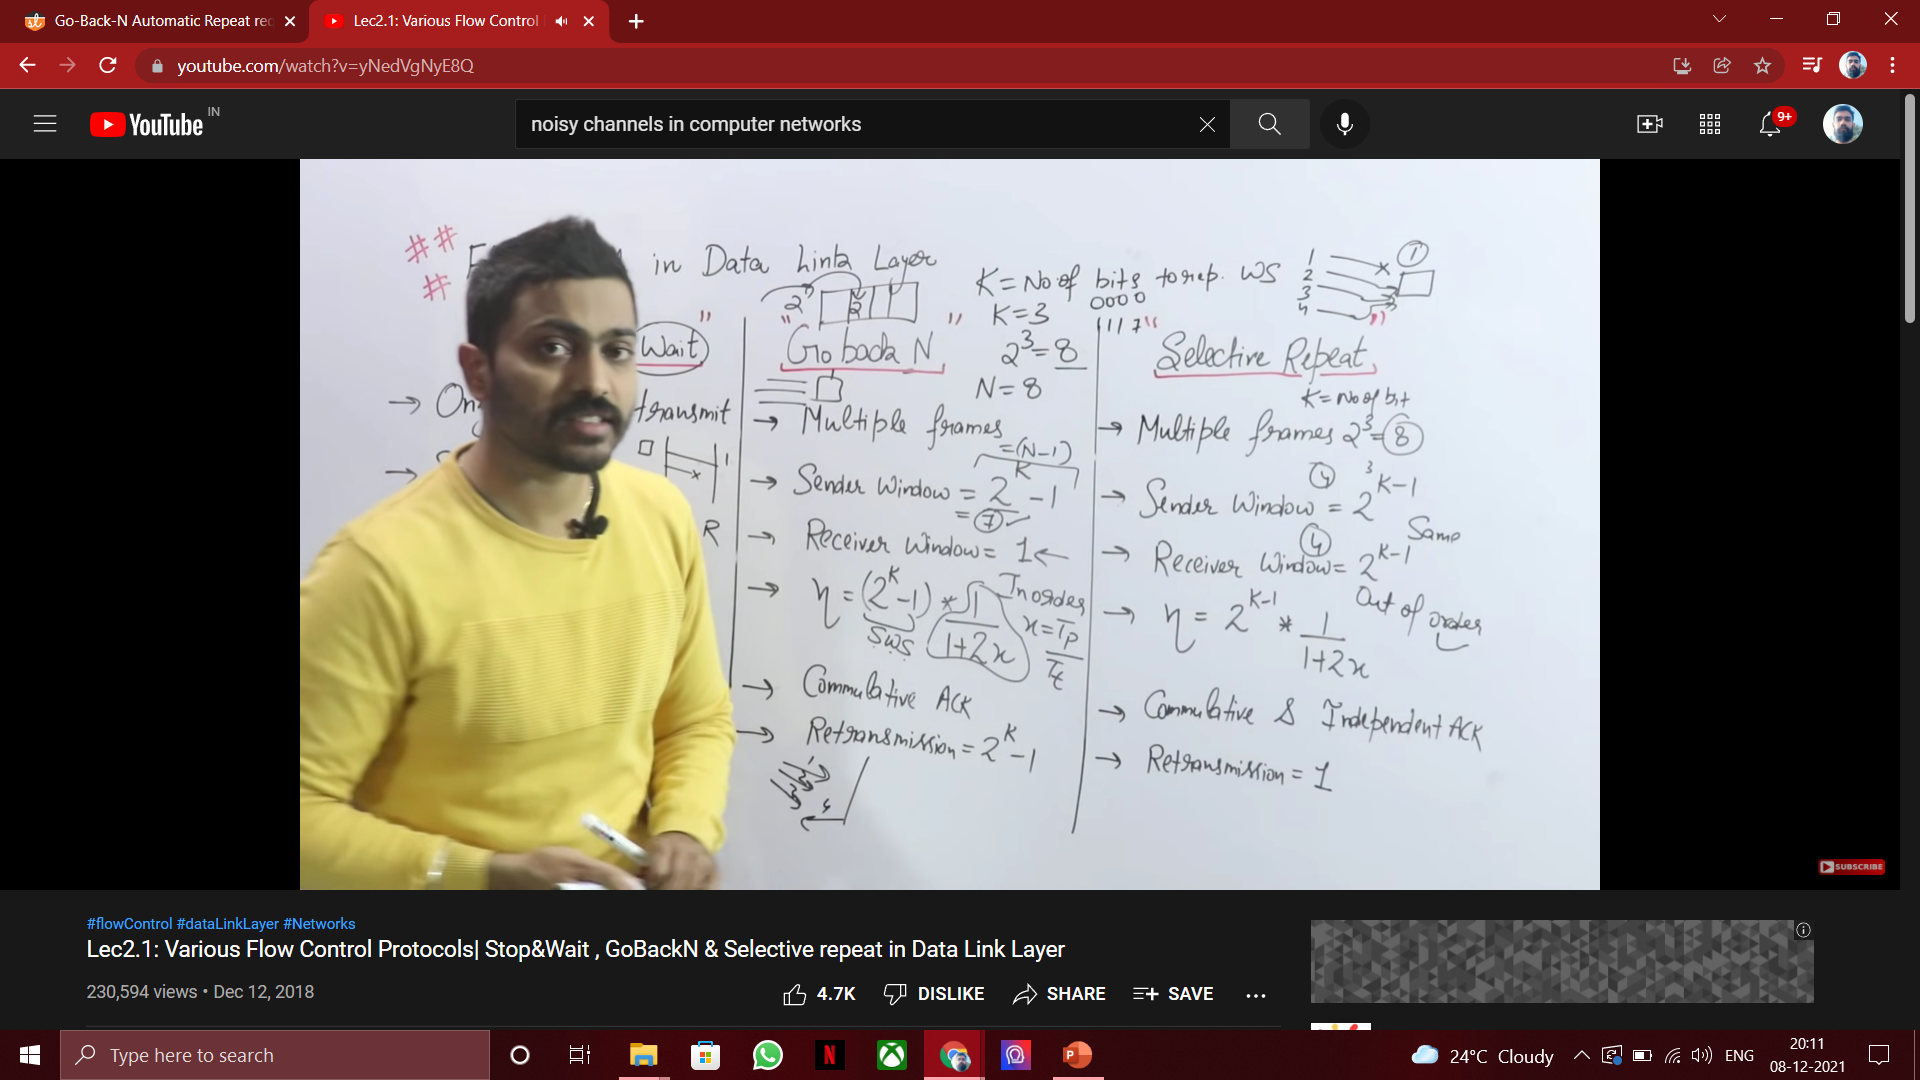 Go-Back-N Automatic Repeat req
Lec2.1: Various Flow Control
youtube.com/watch?v=yNedVgNyE8Q
YouTube IN
noisy channels in computer networks
9+
##
#
F in Data Link Layer
2 2
K = No of bits to rep. WS
0000
K = 3
1117
2³ = 8
N = 8
1
2
3
4
1
Wait
→ On transmit
→ S
R
" Go back N "
→ Multiple frames
= (N-1)
→ Sender Window = 2^K - 1
= 7
→ Receiver Window = 1 ←
In order
→ η = (2^K - 1) * 1/(1+2x)
SWS
x = Tp/Tt
→ Commulative ACK
→ Retransmission = 2^K - 1
" Selective Repeat "
K = No of bit
→ Multiple frames 2³ = 8
4 3
→ Sender Window = 2^K-1
4 Same
→ Receiver Window = 2^K-1
Out of order
→ η = 2^K-1 * 1/(1+2x)
→ Commulative & Independent ACK
→ Retransmission = 1
SUBSCRIBE
#flowControl #dataLinkLayer #Networks
Lec2.1: Various Flow Control Protocols| Stop&Wait , GoBackN & Selective repeat in Data Link Layer
230,594 views • Dec 12, 2018
4.7K DISLIKE SHARE SAVE ...
Type here to search
N
P
24°C Cloudy
ENG
20:11
08-12-2021